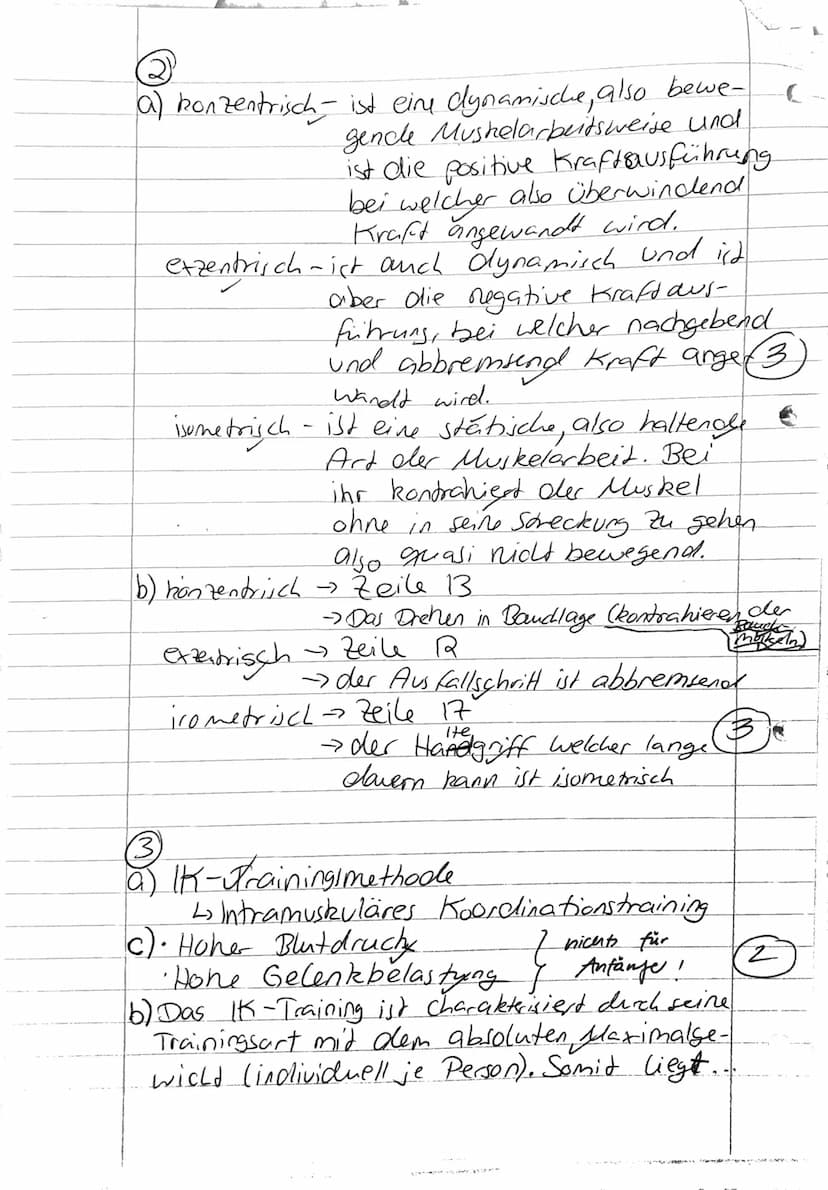 ②
a) konzentrisch – ist eine dynamische, also bewe-
gende Muskelarbeitsweise und
ist die positive Kraftausführung
bei welcher also überwindend
Kraft angewandt wird.
exzentrisch – ist auch dynamisch und ist
aber die negative Kraftaus-
führung, bei welcher nachgebend
und abbremsend Kraft ange- ③
wandt wird.
isometrisch – ist eine statische, also haltende
Art der Muskelarbeit. Bei
ihr kontrahiert der Muskel
ohne in seine Streckung zu gehen
also quasi nicht bewegend.
b) konzentrisch → Zeile 13
→ Das Drehen in Bauchlage (kontrahieren der
Bauch-
muskeln)
exzentrisch → Zeile 12
→ der Ausfallschritt ist abbremsend
isometrisch → Zeile 17
→ der Haltegriff welcher lange ③
dauern kann ist isometrisch
③
a) IK-Trainingsmethode
↳ Intramuskuläres Koordinationstraining
c) · Hoher Blutdruck } nichts für
· Hohe Gelenkbelastung } Anfänger! ②
b) Das IK-Training ist charakterisiert durch seine
Trainingsart mit dem absoluten Maximalge-
wicht (individuell je Person). Somit liegt...